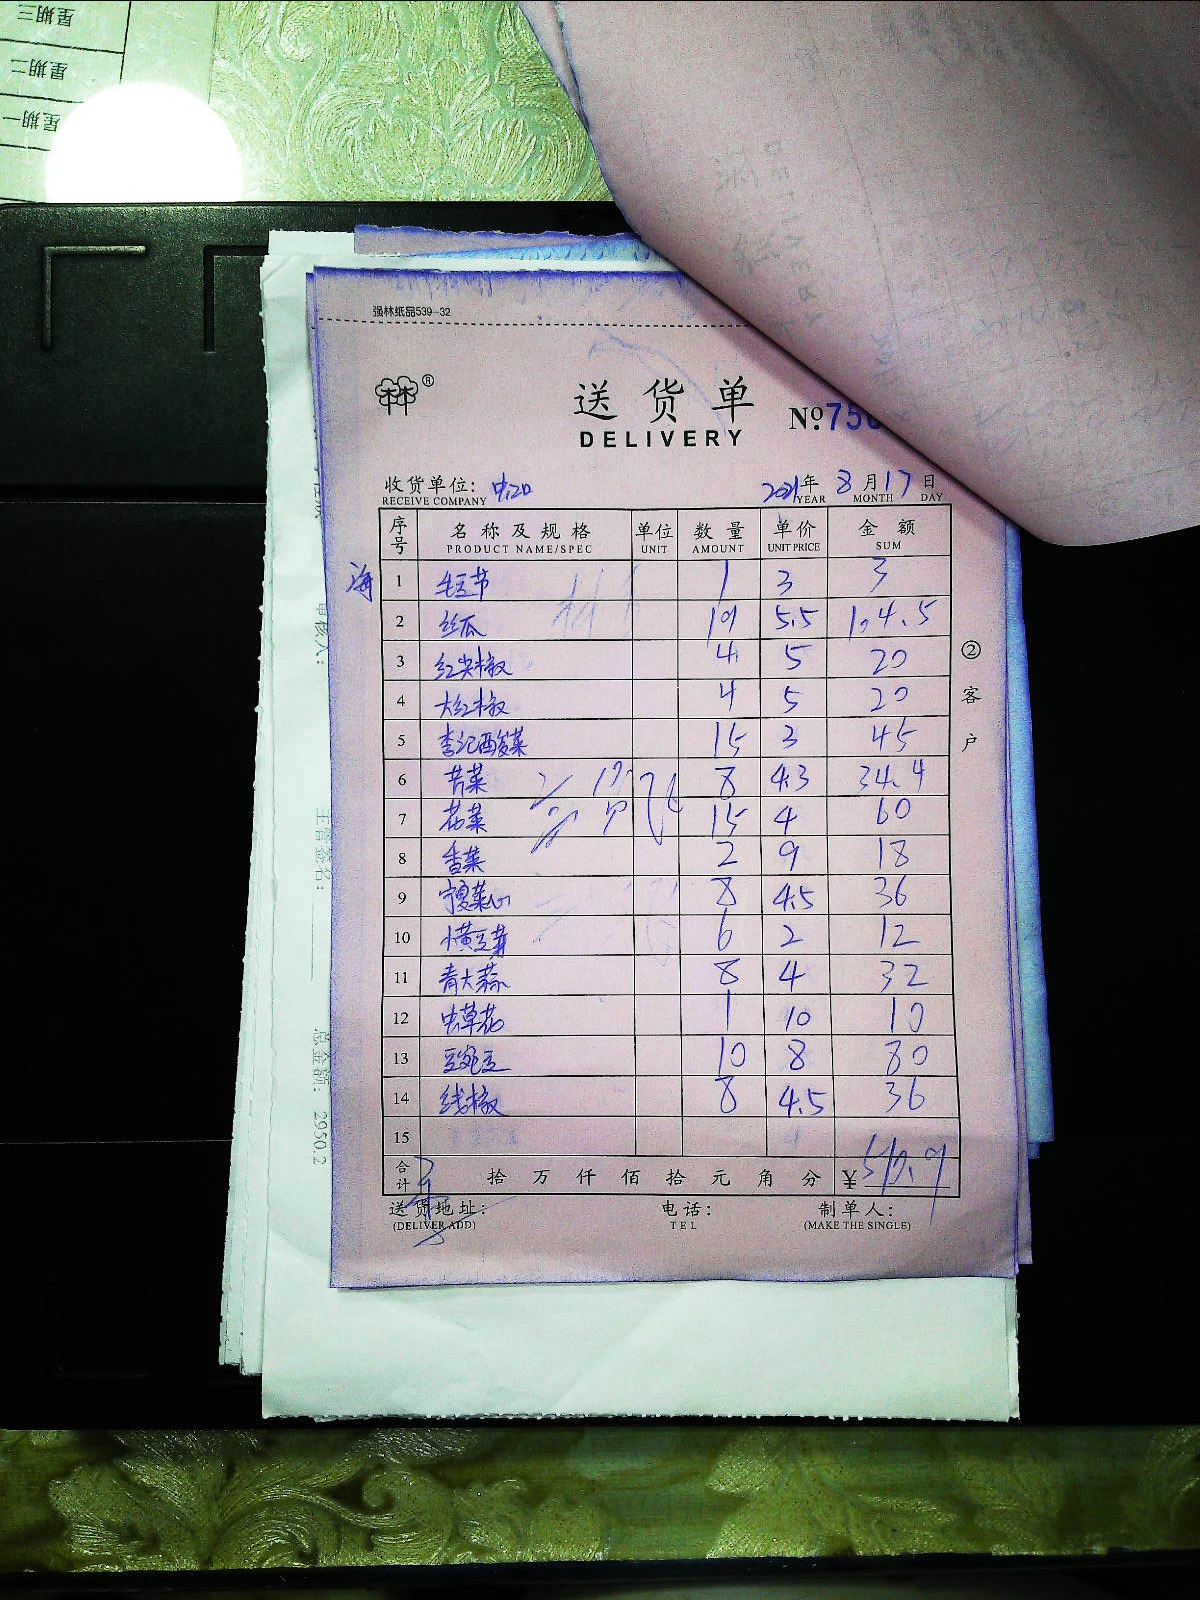 星期三
星期二
星期一
强林纸品539-32
®
送货单
DELIVERY
No.
收货单位:
RECEIVE COMPANY
2021年 8月17日
YEAR MONTH DAY
序号 名称及规格 单位 数量 单价 金额
PRODUCT NAME/SPEC UNIT AMOUNT UNIT PRICE SUM
海
1 毛豆节 1 3 3
2 丝瓜 19 5.5 104.5
3 红尖椒 4 5 20
4 大红椒 4 5 20
5 李记酸菜 15 3 45
6 芥菜 8 4.3 34.4
7 花菜 15 4 60
8 香菜 2 9 18
9 宁夏菜心 8 4.5 36
10 小黄豆芽 6 2 12
11 青大蒜 8 4 32
12 虫草花 1 10 10
13 豌豆 10 8 80
14 线椒 8 4.5 36
15
合计 拾万仟佰拾元角分 ¥510.9
送货地址:
(DELIVER ADD)
电话:
TEL
制单人:
(MAKE THE SINGLE)
②客户
审核人:
主管签名:
总金额: 2950.2